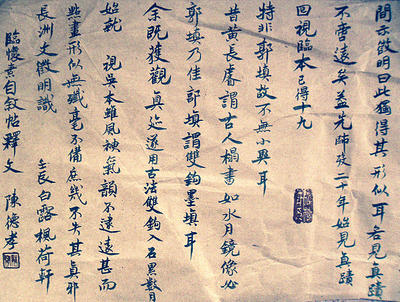 間示徵明曰此獨得其形似耳若見真蹟
不啻遠矣蓋先師歿二十年始見真蹟
回視臨本已得十九
特非郭填故不無小異耳
昔黃長睿謂古人搨書如水月鏡像必
郭填乃佳郭填謂雙鈎墨填耳
余既獲觀真迹遂用古法雙鈎入石累數月
始就 視吳本雖風神氣韻不逮遠甚而
點畫形似無纖毫不備庶幾不失其真邪
長洲文徵明識 壬辰白露楓荷軒
臨懷素自敘帖釋文 陳德孝